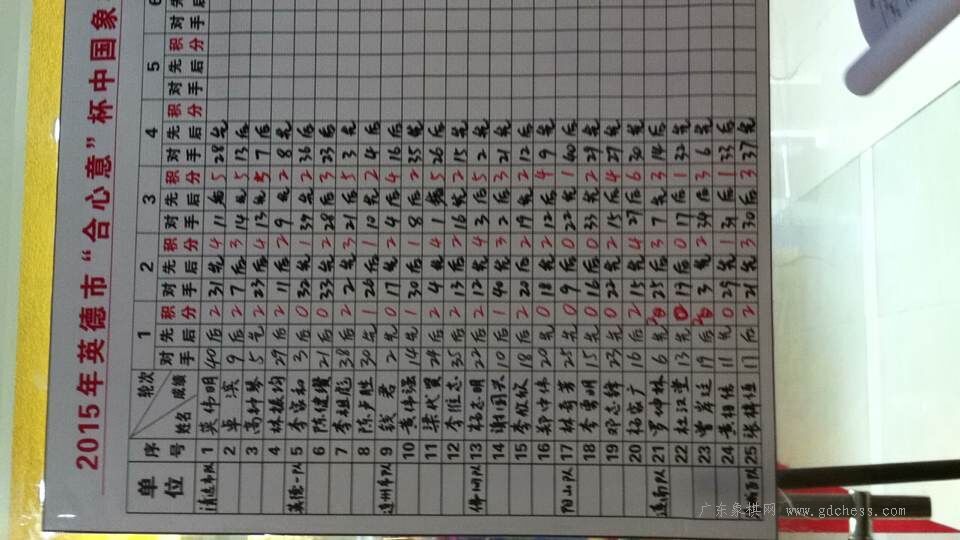 2015年英德市“合心意”杯中国象
单位 序号 轮次 成绩 姓名 1 2 3 4 5 6
对手 先后 积分 对手 先后 积分 对手 先后 积分 对手 先后 积分 对手 先后 积分 对手 先后
清远市队 1 英伟明 40 后 2 31 先 4 11 后 5 28 先
2 卓滨 9 后 2 7 后 3 14 先 5 13 后
3 高钟琴 5 先 2 23 后 4 13 先 5 7 后
4 林振均 29 后 2 11 后 2 9 先 2 8 先
英德一队 5 李家和 3 后 0 32 先 1 39 先 2 36 后
6 陈健 21 后 0 33 先 2 28 后 3 23 后
7 李祖彪 38 后 2 2 先 3 21 后 5 3 先
8 陈卢胜 30 先 1 26 后 1 10 先 2 4 后
连州市队 9 钱君 2 先 0 17 先 2 4 后 4 16 后
10 黄伟强 14 先 1 30 后 1 8 后 2 35 先
11 梁代贤 24 后 2 4 先 4 1 先 5 26 后
12 李胜志 35 后 2 13 后 2 16 先 2 15 先
佛冈队 13 杨志明 22 后 2 12 先 4 3 后 5 2 先
14 谢国兴 10 后 1 40 先 3 2 后 3 21 后
15 李欣 18 后 2 20 后 2 19 先 2 12 后
16 郑中伟 20 先 0 18 先 2 12 后 4 9 先
阳山队 17 林奇芳 25 先 0 9 后 0 22 先 1 40 后
18 李明 15 先 0 16 后 0 33 先 2 29 先
19 邓志锋 23 先 0 22 先 2 15 后 4 27 后
20 杨家广 16 后 2 15 先 4 27 后 6 30 先
连南队 21 罗坤林 6 先 2 25 先 3 7 先 3 14 后
22 杜江坚 13 先 0 19 后 0 17 后 1 32 先
23 曾岸廷 19 后 2 3 先 2 34 后 3 6 先
24 黄相伟 11 先 0 29 后 1 31 后 1 33 后
25 张锦雄 17 后 2 21 先 3 30 后 3 37 先
广东象棋网 www.gdchess.com